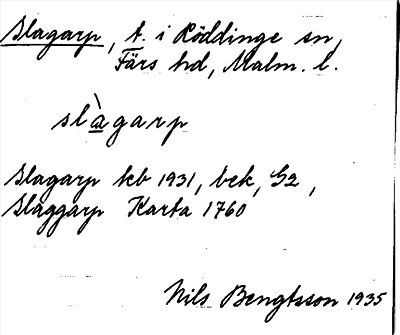 Slagarp, t. i Röddinge sn,
Färs hd, Malm. l.
slàgarp
Slagarp kb 1931, bek, G2,
Slaggarp Karta 1760
Nils Bengtsson 1935